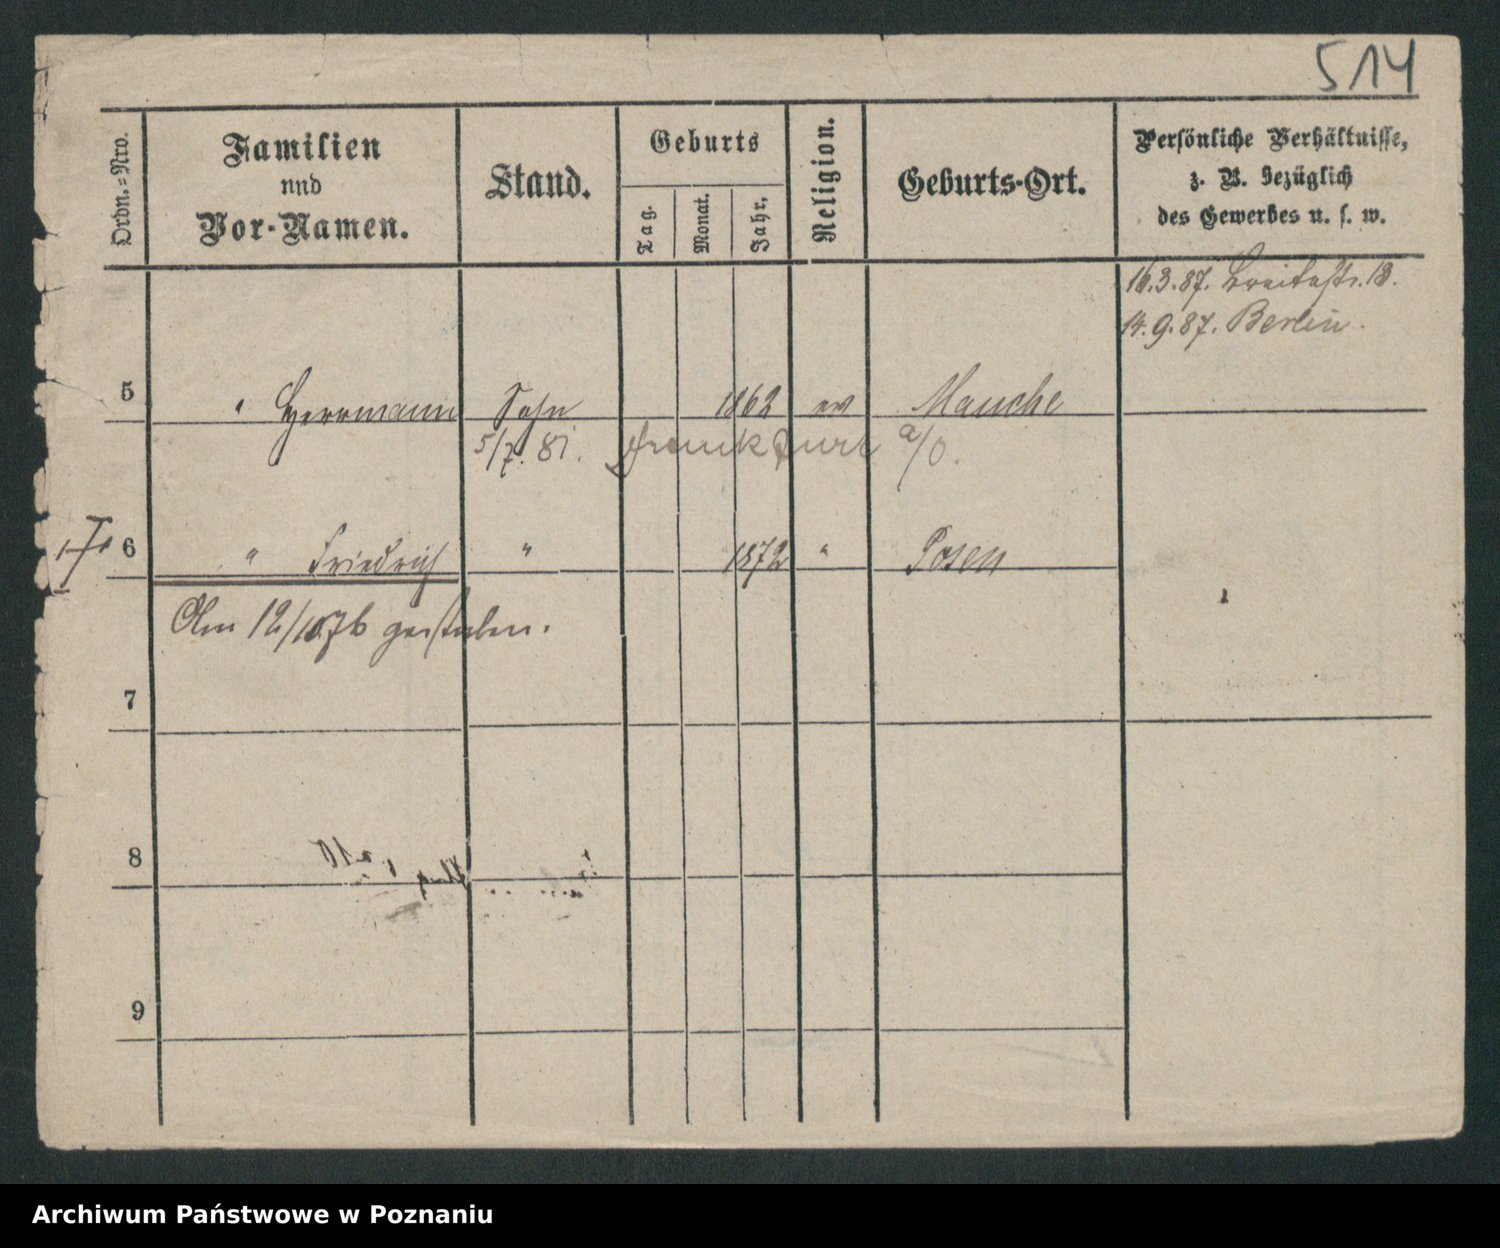 514
Ordn.=Nro.
Familien
und
Vor-Namen.
Stand.
Geburts
Tag.
Monat.
Jahr.
Religion.
Geburts-Ort.
Persönliche Verhältnisse,
z. B. bezüglich
des Gewerbes u. s. w.
16.3.87. Breitestr. 18.
14.9.87. Berlin.
5 " Herrmann Sohn 1862 ev Mauche
5/7. 81. Frankfurt a/O.
6 " Friedrich " 1872 " Posen
Am 12/10 76 gestorben.
7
8
9
Archiwum Państwowe w Poznaniu